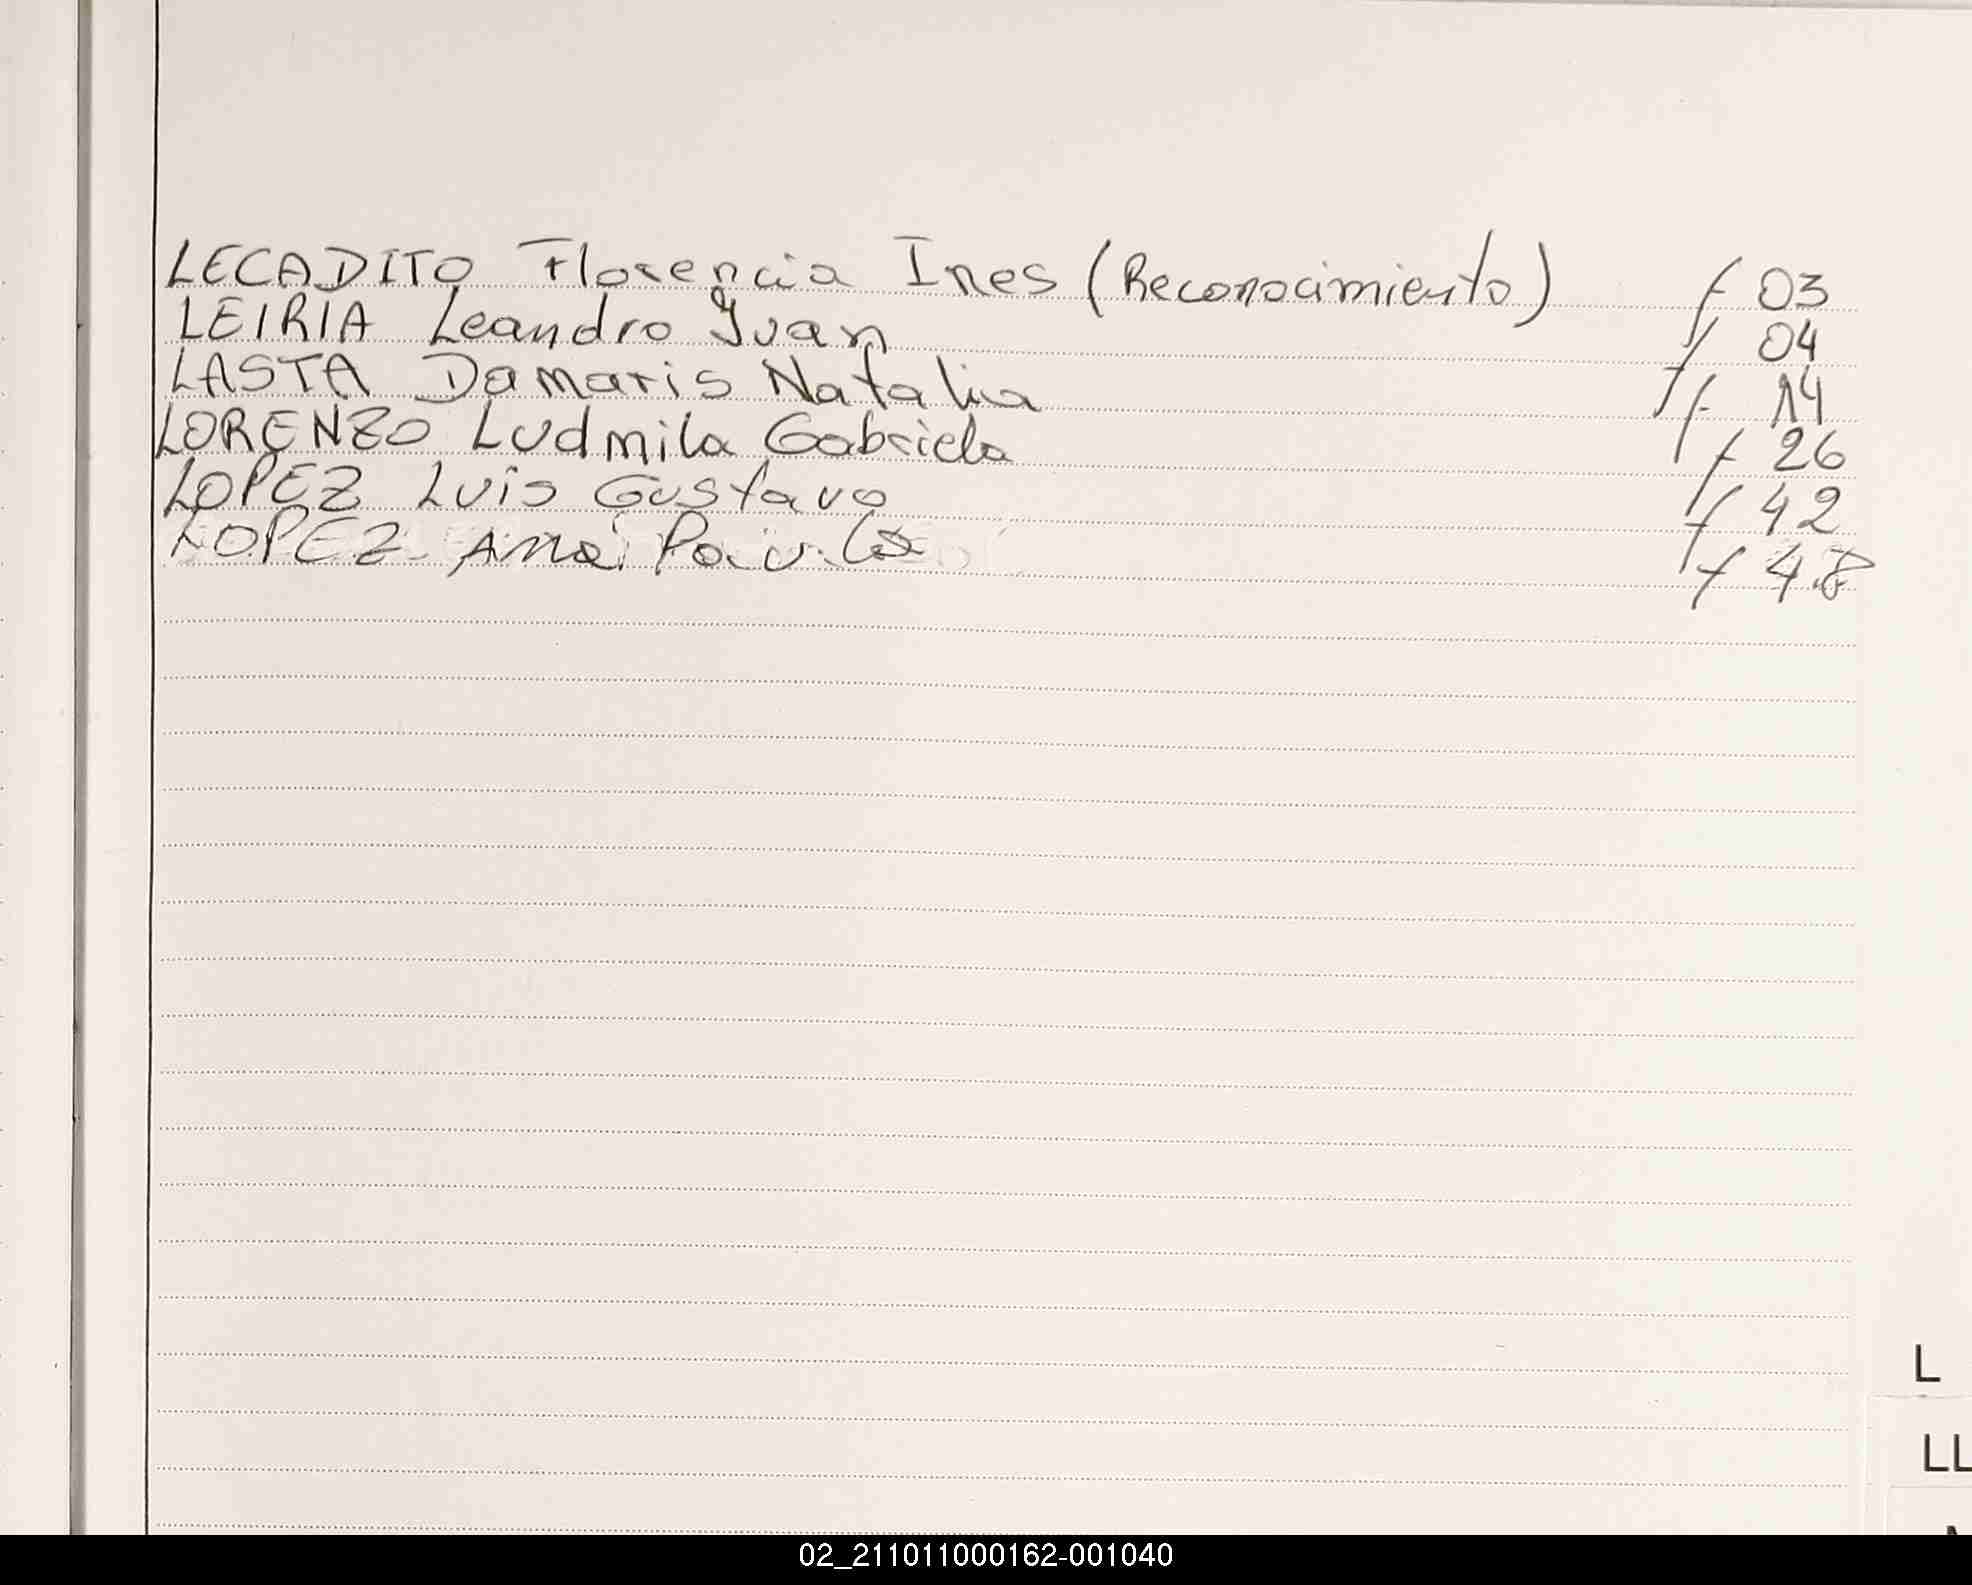 LECADITO Florencia Ines (Reconocimiento) f 03
LEIRIA Leandro Ivan f 04
LASTA Damaris Natalia f 14
LORENZO Ludmila Gabriela f 26
LOPEZ Luis Gustavo f 42
LOPEZ Ana Paula f 48
L
LL
02_211011000162-001040